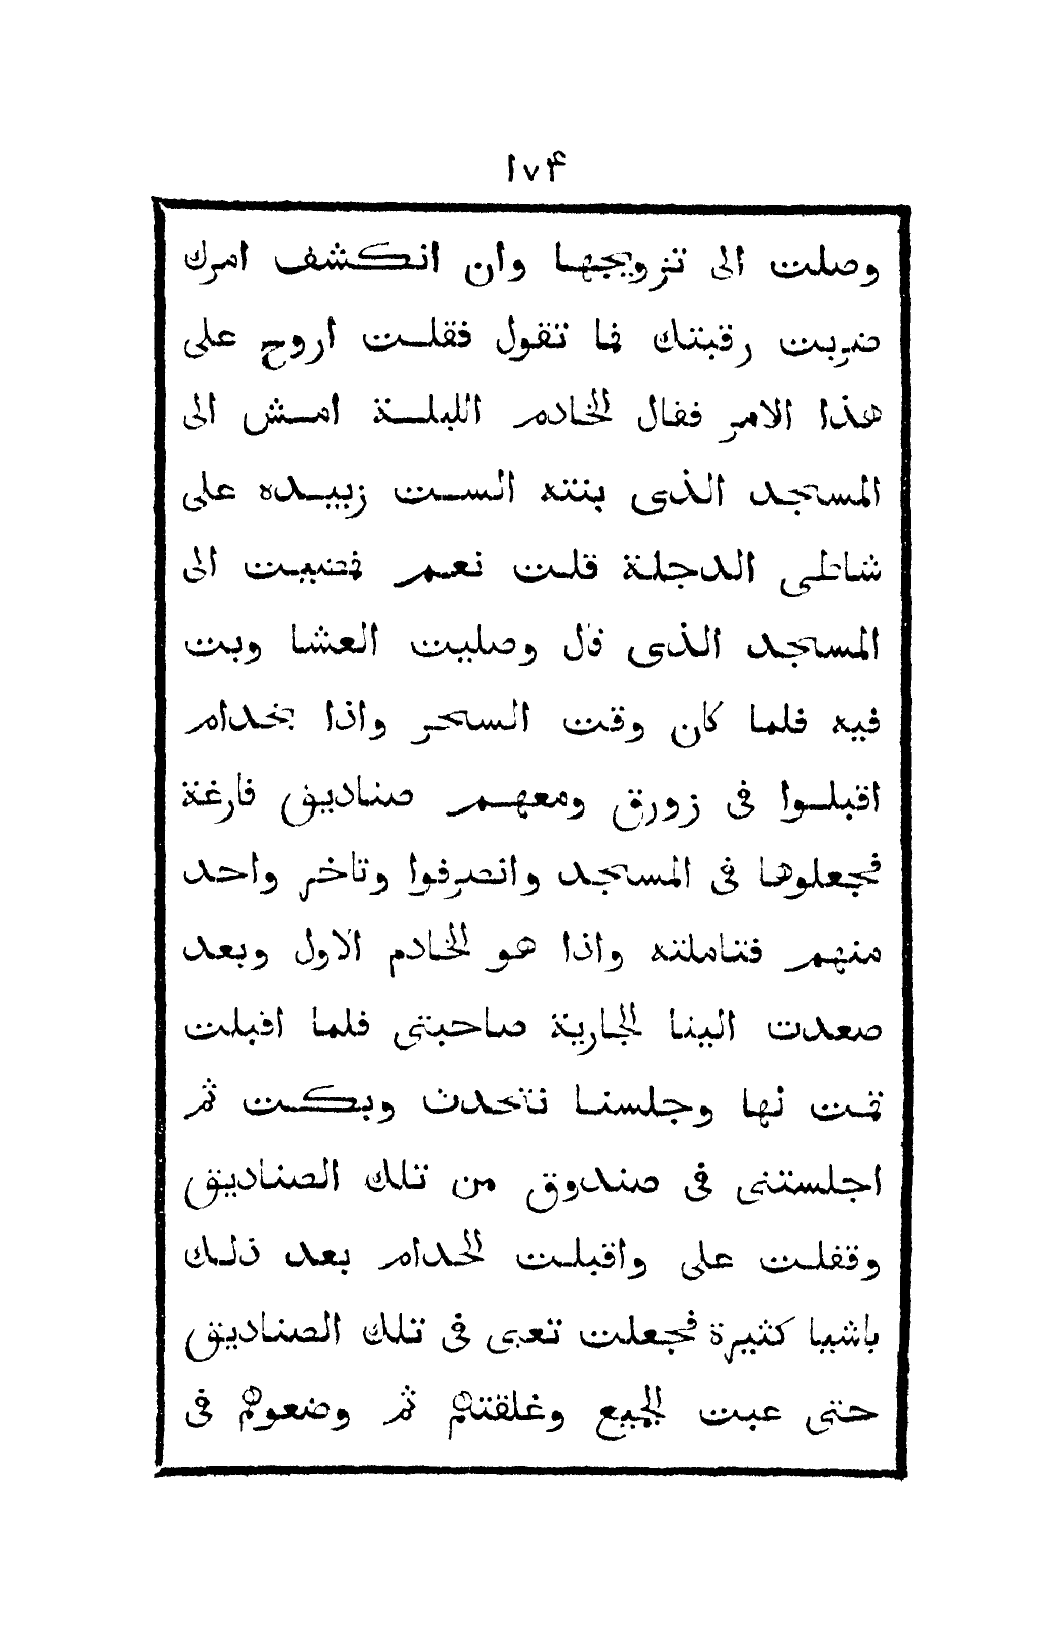 ١٧۴
وصلت الى تزويجها وان انكشف امرك
ضربت رقبتك فما تقول فقلت اروح على
هذا الامر فقال الخادم الليلة امش الى
المسجد الذى بنته الست زبيده على
شاطى الدجلة قلت نعم فمضيت الى
المسجد الذى قال وصليت العشا وبت
فيه فلما كان وقت السحر واذا بخدام
اقبلوا فى زورق ومعهم صناديق فارغة
فجعلوها فى المسجد وانصرفوا وتاخر واحد
منهم فتاملته واذا هو الخادم الاول وبعد
صعدت الينا الجارية صاحبتى فلما اقبلت
قمت لها وجلسنا نتحدث وبكت ثم
اجلستنى فى صندوق من تلك الصناديق
وقفلت على واقبلت الخدام بعد ذلك
باشيا كثيرة فجعلت تعبى فى تلك الصناديق
حتى عبت الجميع وغلقتهم ثم وضعوهم فى